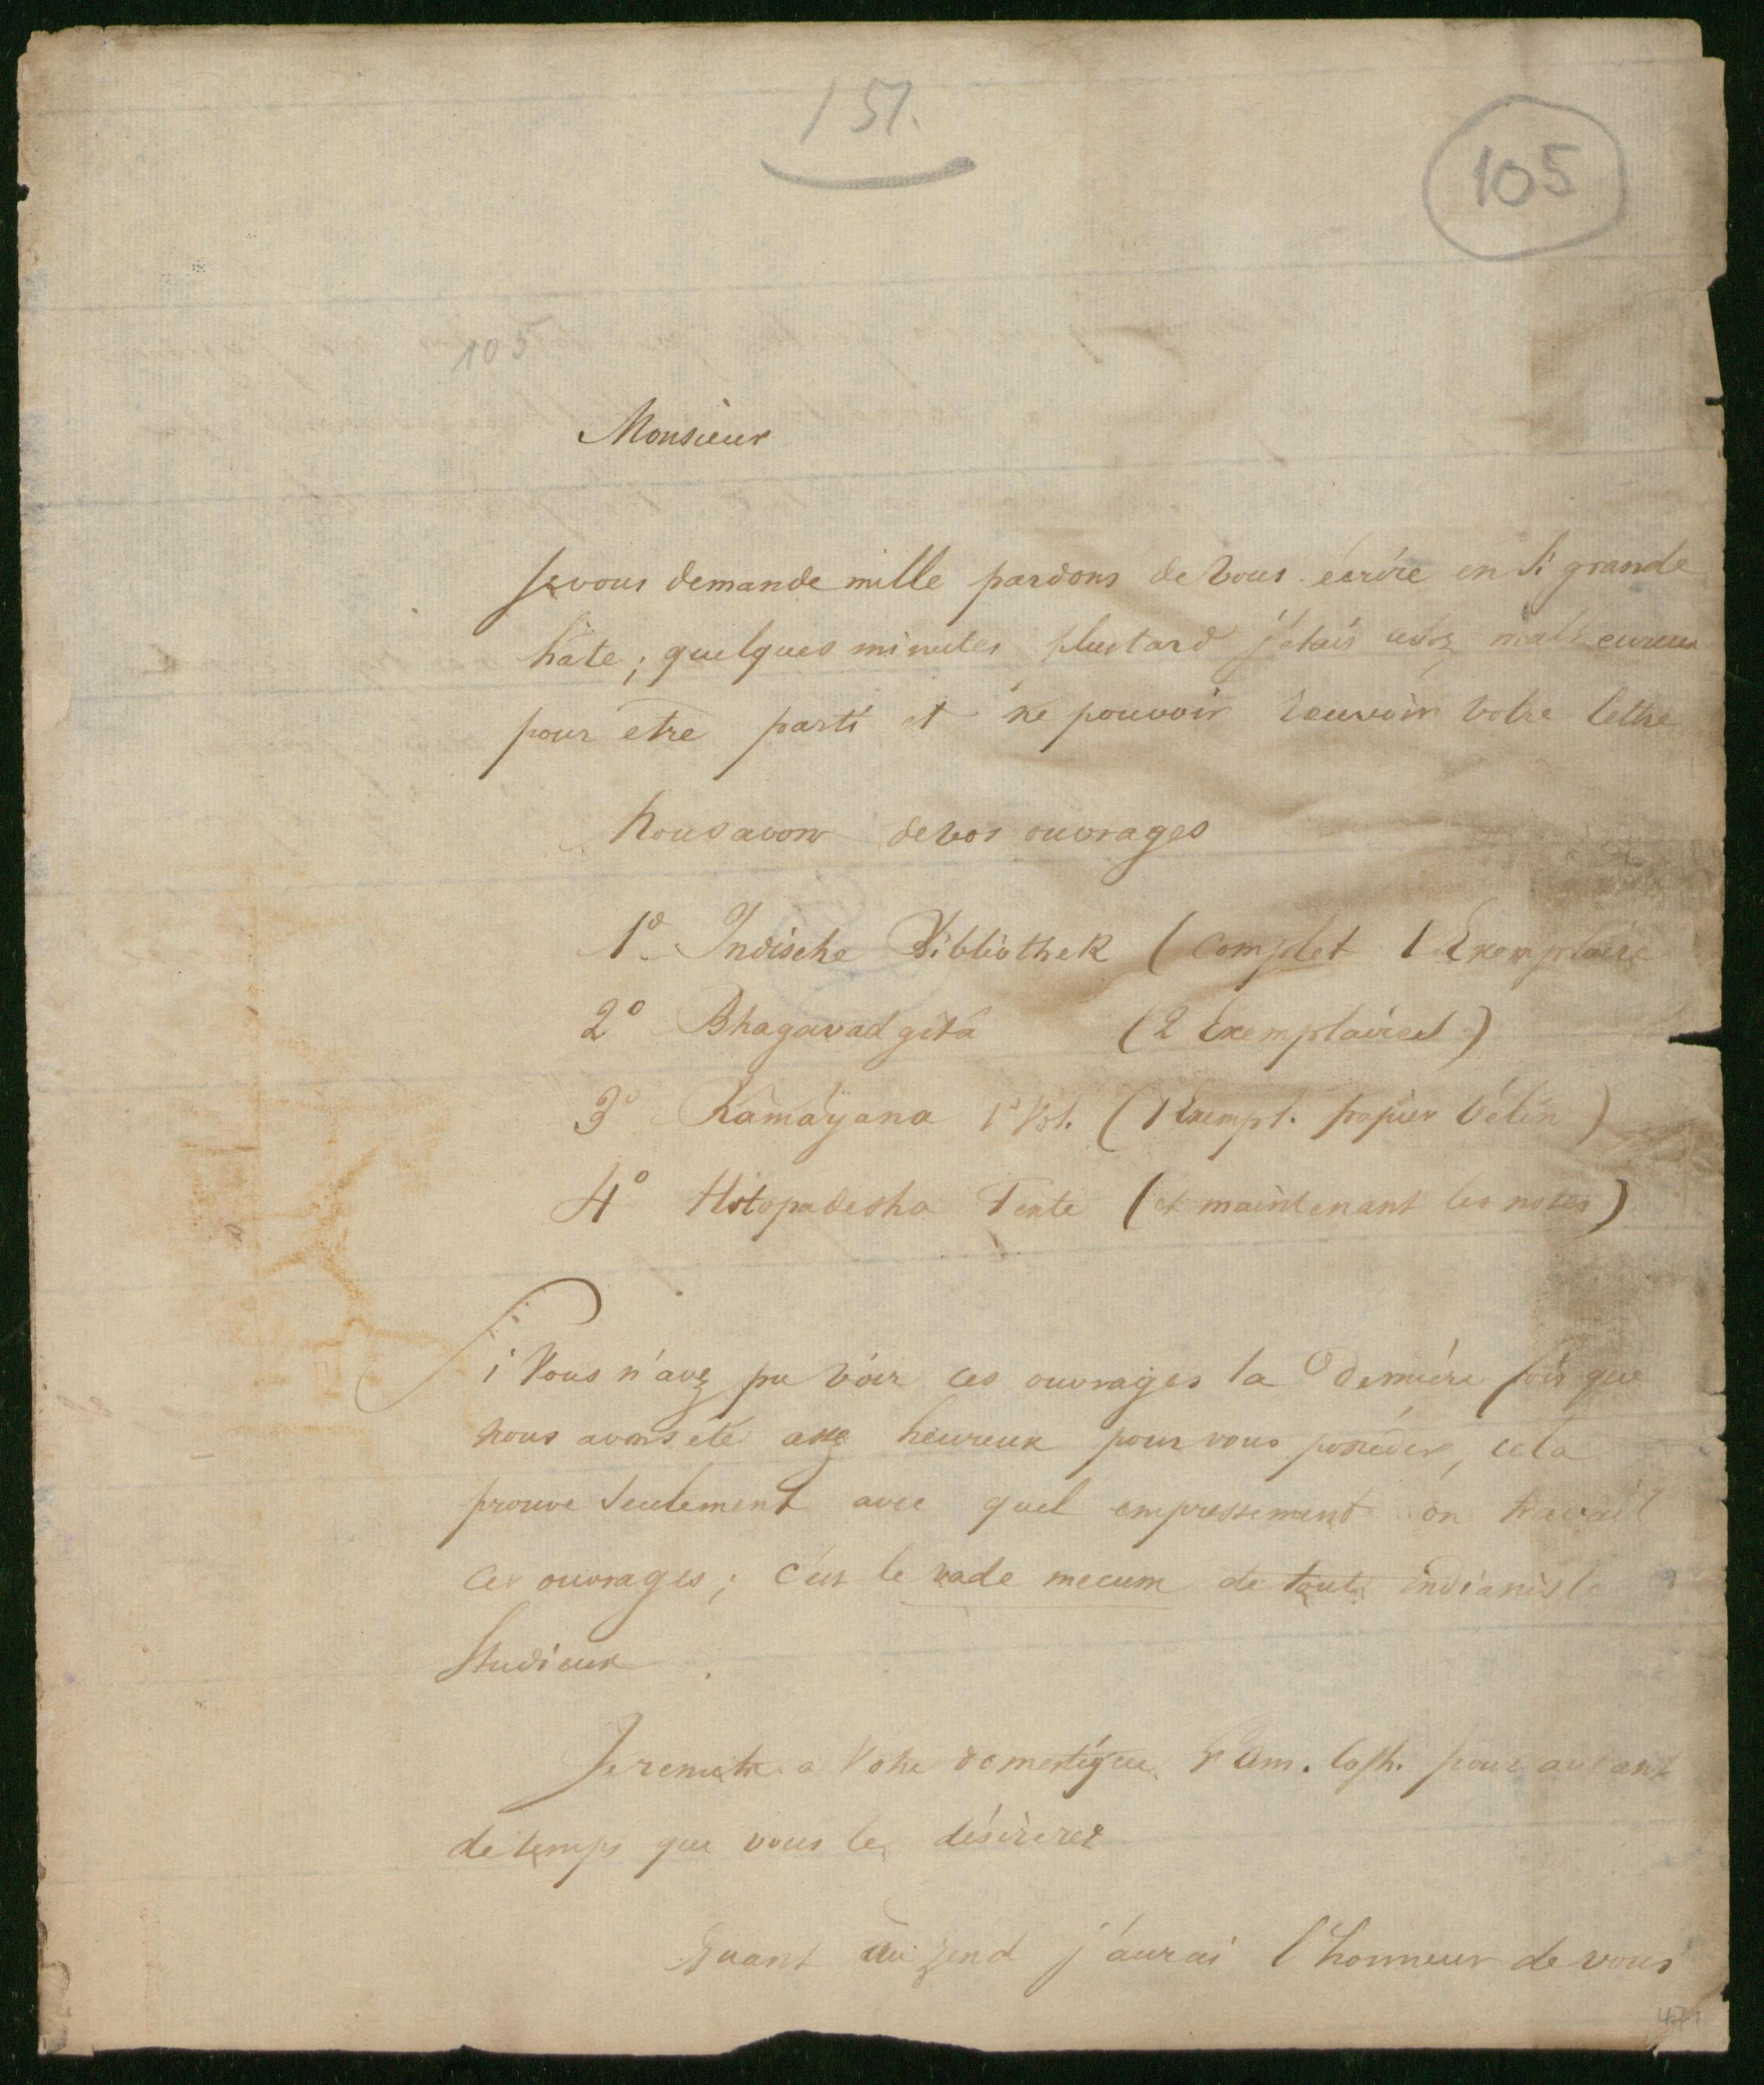 151.
105
105
Monsieur
Je vous demande mille pardons de vous écrire en si grande
hâte; quelques minutes plustard j'étais assez malheureux
pour être parti et ne pouvoir recevoir votre lettre
Nous avons de vos ouvrages
1º Indische Bibliothek (complet 1 Exemplaire
2º Bhagavad gîtâ (2 Exemplaires)
3º Ramáyana 1º Vol. (1 Exempl. papier Vélin)
4º Hitopadesha Texte (et maintenant les notes)
Si Vous n'avez pu voir ces ouvrages la dernière fois que
nous avons été assez heureux pour vous posséder, cela
prouve seulement avec quel empressement on travail
ces ouvrages; c'est le vade mecum de tout indianiste
Studieux.
Je remets a Votre domestique l'Am. Cosh. pour autant
de temps que vous le désirerez
Quant au Zend j'aurai l'honneur de vous